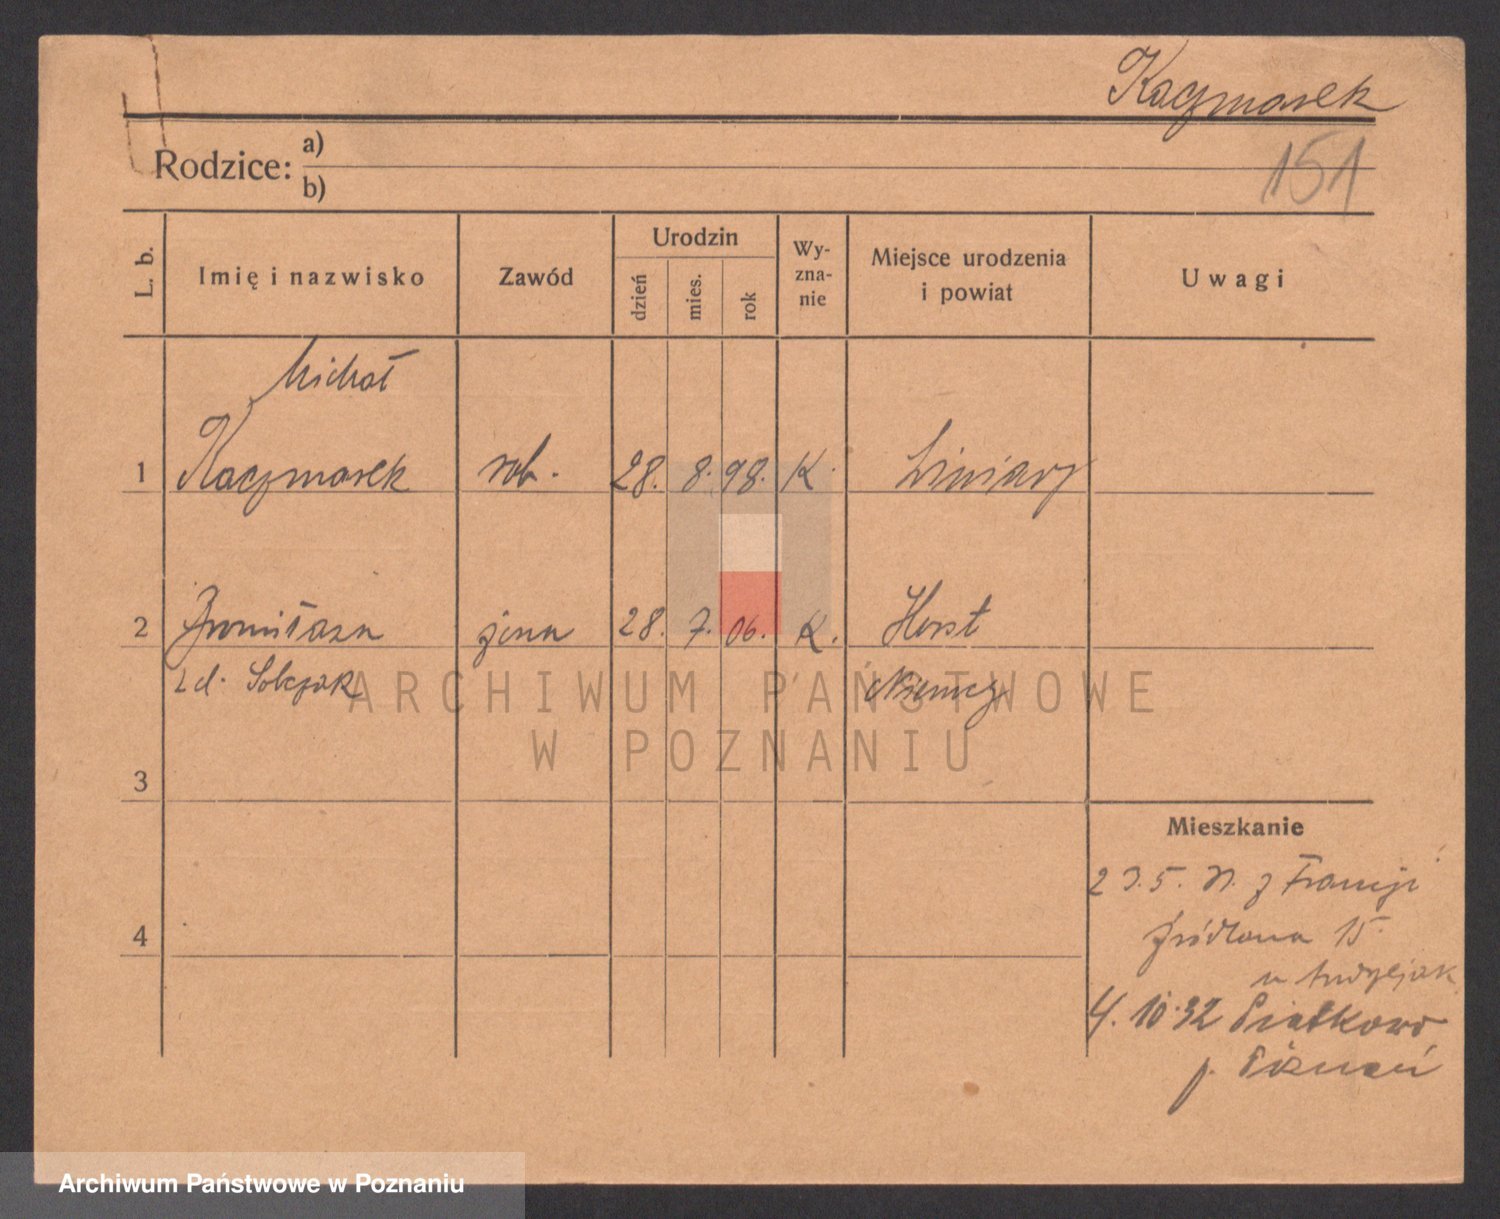 Kaczmarek
151
Rodzice: a)
b)
L. b. Imię i nazwisko Zawód Urodzin dzień mies. rok Wy-zna-nie Miejsce urodzenia i powiat Uwagi
Michał
1 Kaczmarek rob. 28. 8. 98. K. Winiary
2 Bronisława żona 28. 7. 06. K. Horst
z d. Sobczak Niemcy
ARCHIWUM PAŃSTWOWE
W POZNANIU
3
Mieszkanie
23.5. z Francji
4 Źródlana 15
u Andrzejak
4.10.32 Piątkowo
p. Poznań
Archiwum Państwowe w Poznaniu